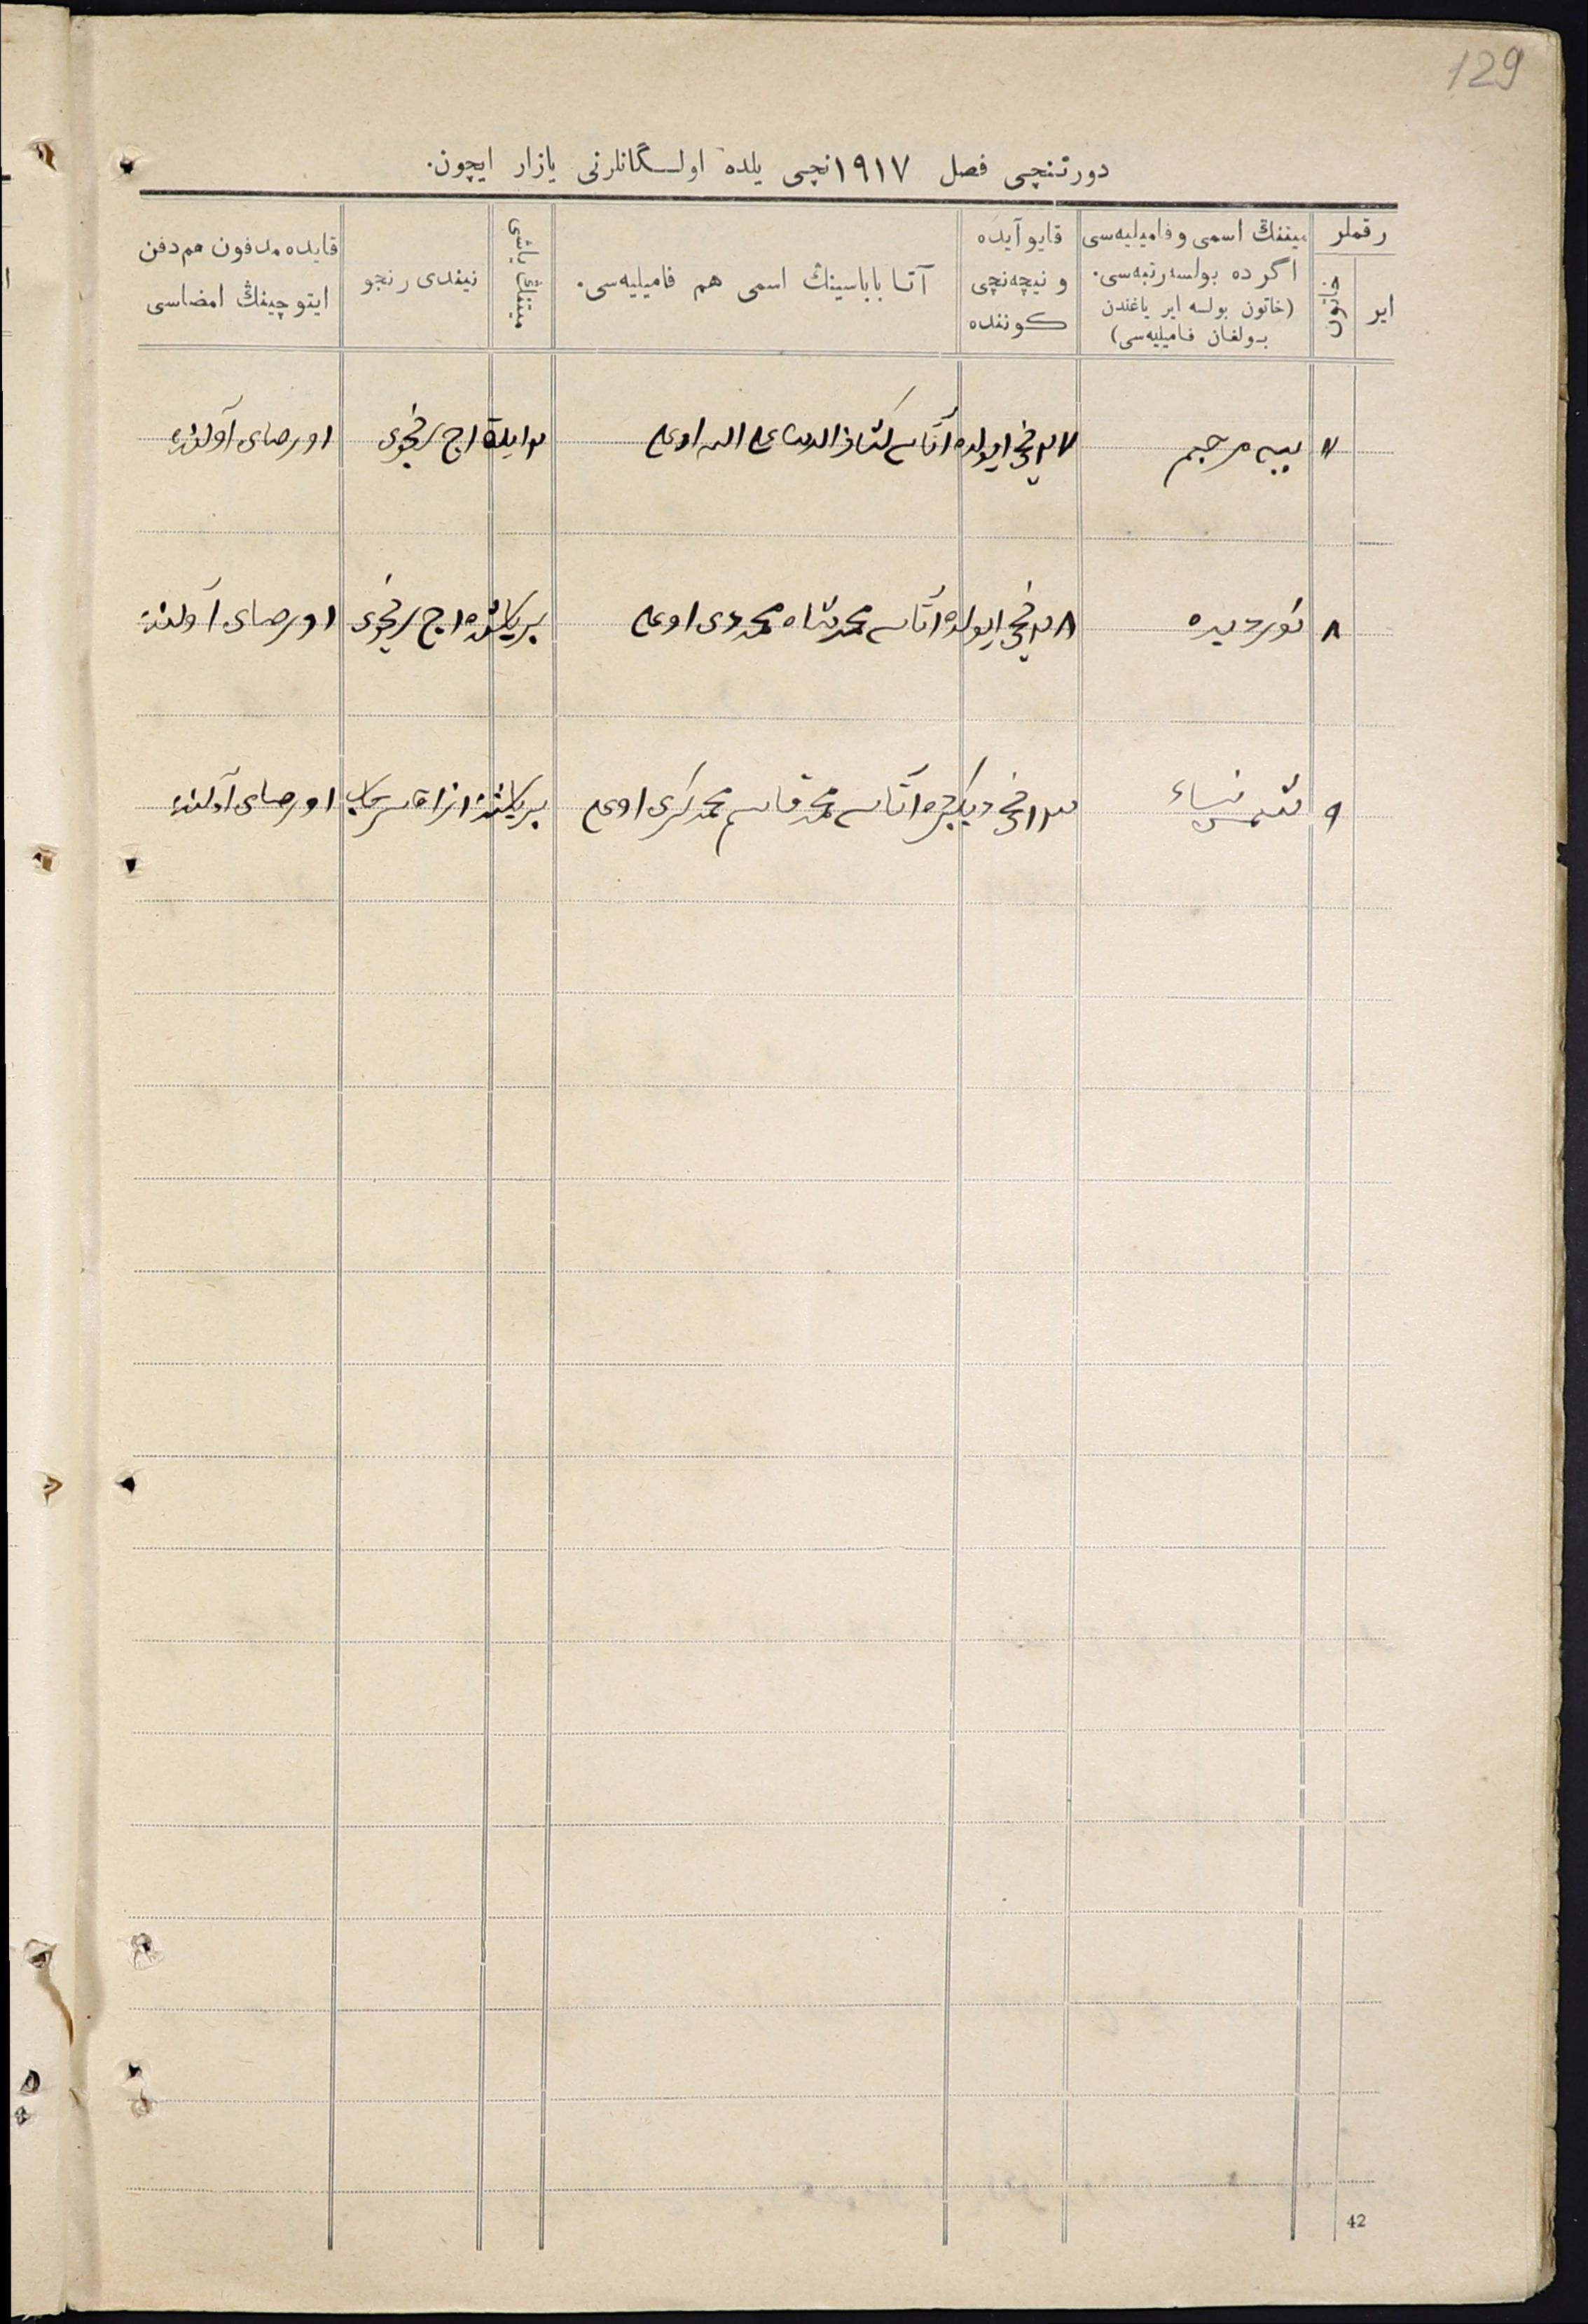 129
دورتنچی فصل ١٩١٧نچی یلده اولـسگانلرنی یازار ایچون.
رقملر
ایر
خاتون
میتنڭ اسمی وفامیلیه‌سی
اگر ده بولسه رتبه‌سی.
(خاتون بولسه ایر یاغندن
بـولغان فامیلیه‌سی)
قایو آیده
و نیچه‌نچی
کوننده
آتـا باباسینڭ اسمی هم فامیلیه‌سی.
میتنڭ یاشی
نیندی رنجو
قایده مدفون هم دفن
ایتوچینڭ امضاسی
٧ بیبه مرجم ٢٧نچی ایولده آتاسی اوغلی ٢ ایلق اچ رنجوی اورصای آولنده
٨ نوردیده ٢٨نچی ایولده آتاسی محمدشاه محمدی اوغلی بر یاشنده اچ رنجوی اورصای آولنده
٩ شمس نساء ١٣نچی دیکبرده آتاسی محمد قاسم محمد کری اوغلی بر یاشنده اورصای آولنده
42